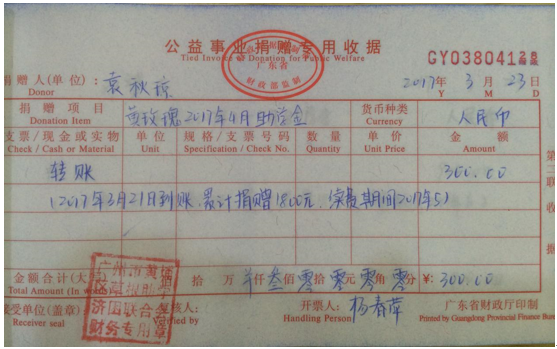 公益事业捐赠专用收据
Tied Invoice of Donation for Public Welfare
广东省
财政部监制
GY03804128
捐赠人(单位):袁秋琼
Donor
2017年3月23日
Y M D
捐赠项目 黄玫瑰2017年4月助学金 货币种类 人民币
Donation Item Currency
支票/现金或实物 单位 规格/支票号码 数量 单价 金额
Check / Cash or Material Unit Specification / Check No. Quantity Unit Price Amount
转账 300.00
(2017年3月21日到账,累计捐赠1800元,
期间2017年5)
第
联
收
据
金额合计(大写) 拾 万 仟叁佰零拾零元零角零分 ¥:300.00
Total Amount (In
广州市
济困联合
财务专用章
接受单位(盖章)
Receiver seal
核人:
fied by
开票人:杨春萍
Handling Person
广东省财政厅印制
Printed by Guangdong Provincial Finance Bureau